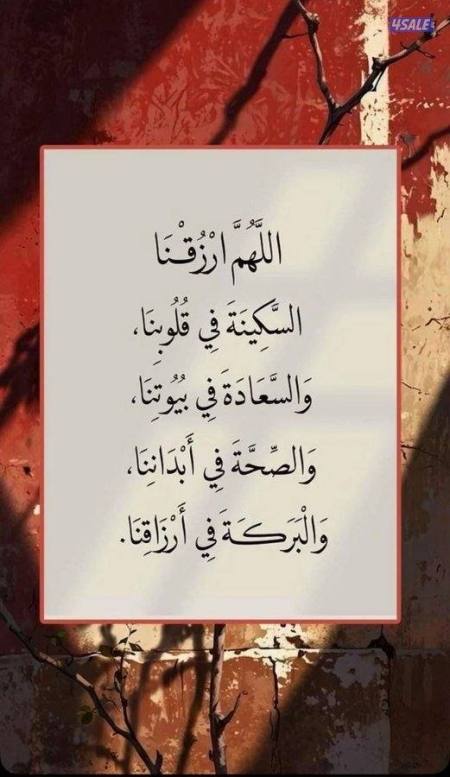 4SALE
اللَّهُمَّ ارْزُقْنَا
السَّكِينَةَ فِي قُلُوبِنَا،
وَالسَّعَادَةَ فِي بُيُوتِنَا،
وَالصِّحَّةَ فِي أَبْدَانِنَا،
وَالْبَرَكَةَ فِي أَرْزَاقِنَا.